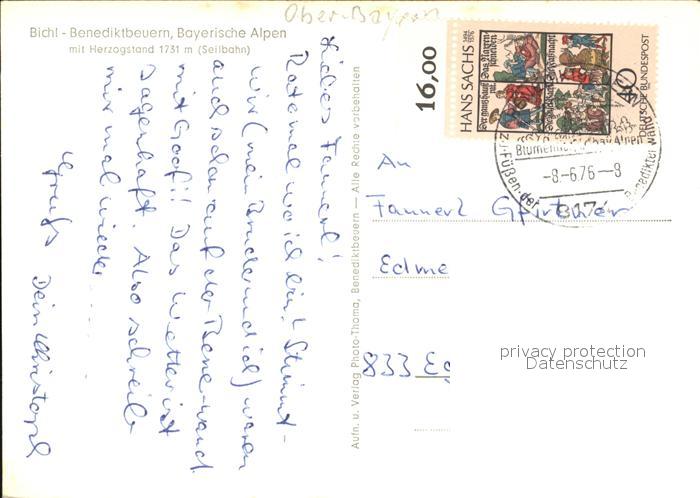 Ober-Bayern
Bichl - Benediktbeuern, Bayerische Alpen
mit Herzogstand 1731 m (Seilbahn)
Liebes Fannerl!
Rate mal wo ich bin! Stimmt-
wir (mein Bruder und ich) waren
auch schon auf der Bene-wand
mit Goofi! Das Wetter ist
sagenhaft. Also schreib
mir mal wieder....
Gruß Dein Christoph
Aufn. u. Verlag Photo-Thoma, Benediktbeuern — Alle Rechte vorbehalten
16,00
HANS SACHS 1494 1576
40
DEUTSCHE BUNDESPOST
-8-6.76-8
Zu Füßen der Benediktenwand
8174
An
Fannerl
Edme
833 Eg
privacy protection
Datenschutz